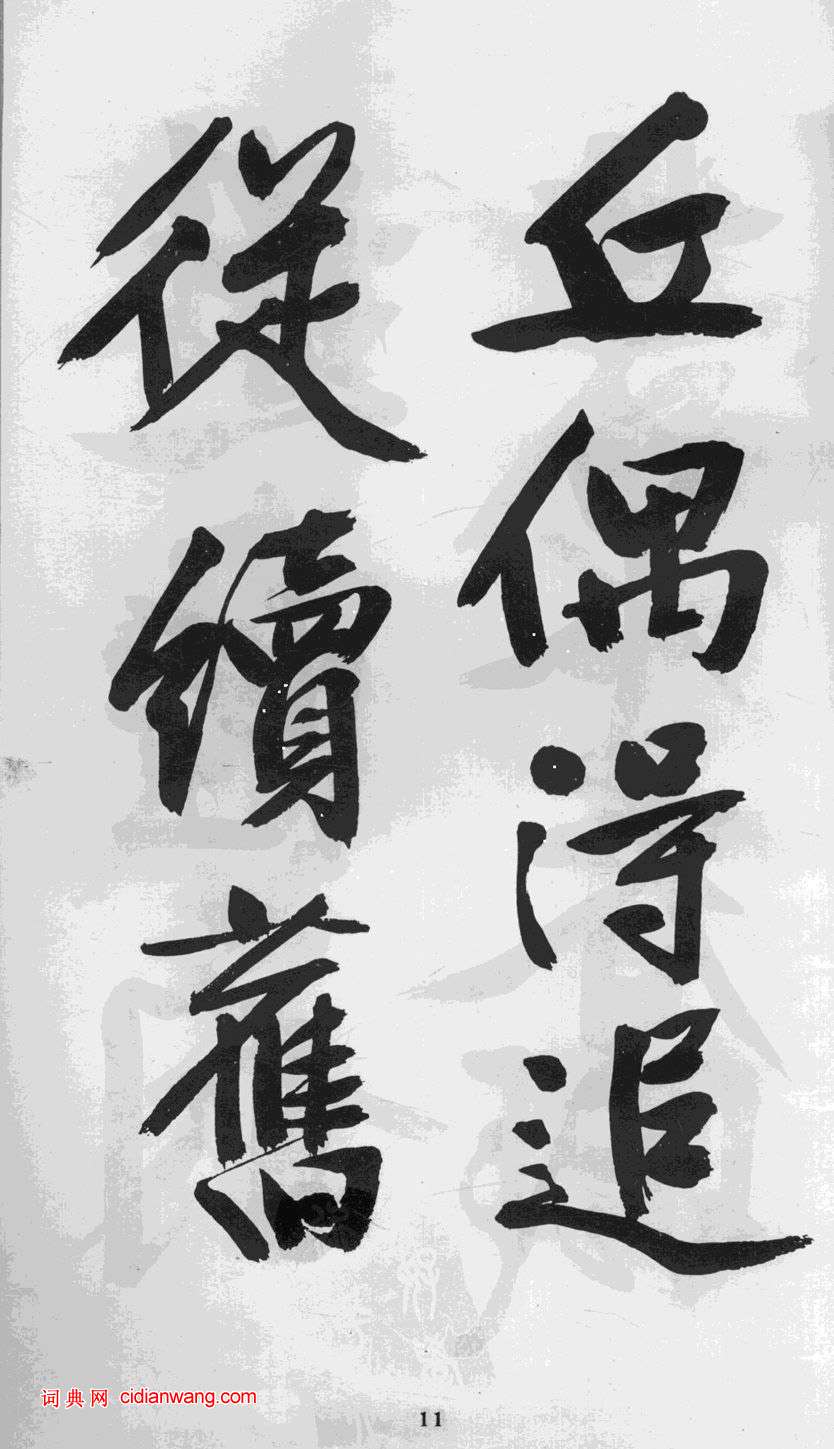 丘偶得追
從續舊
词典网 cidianwang.com
11